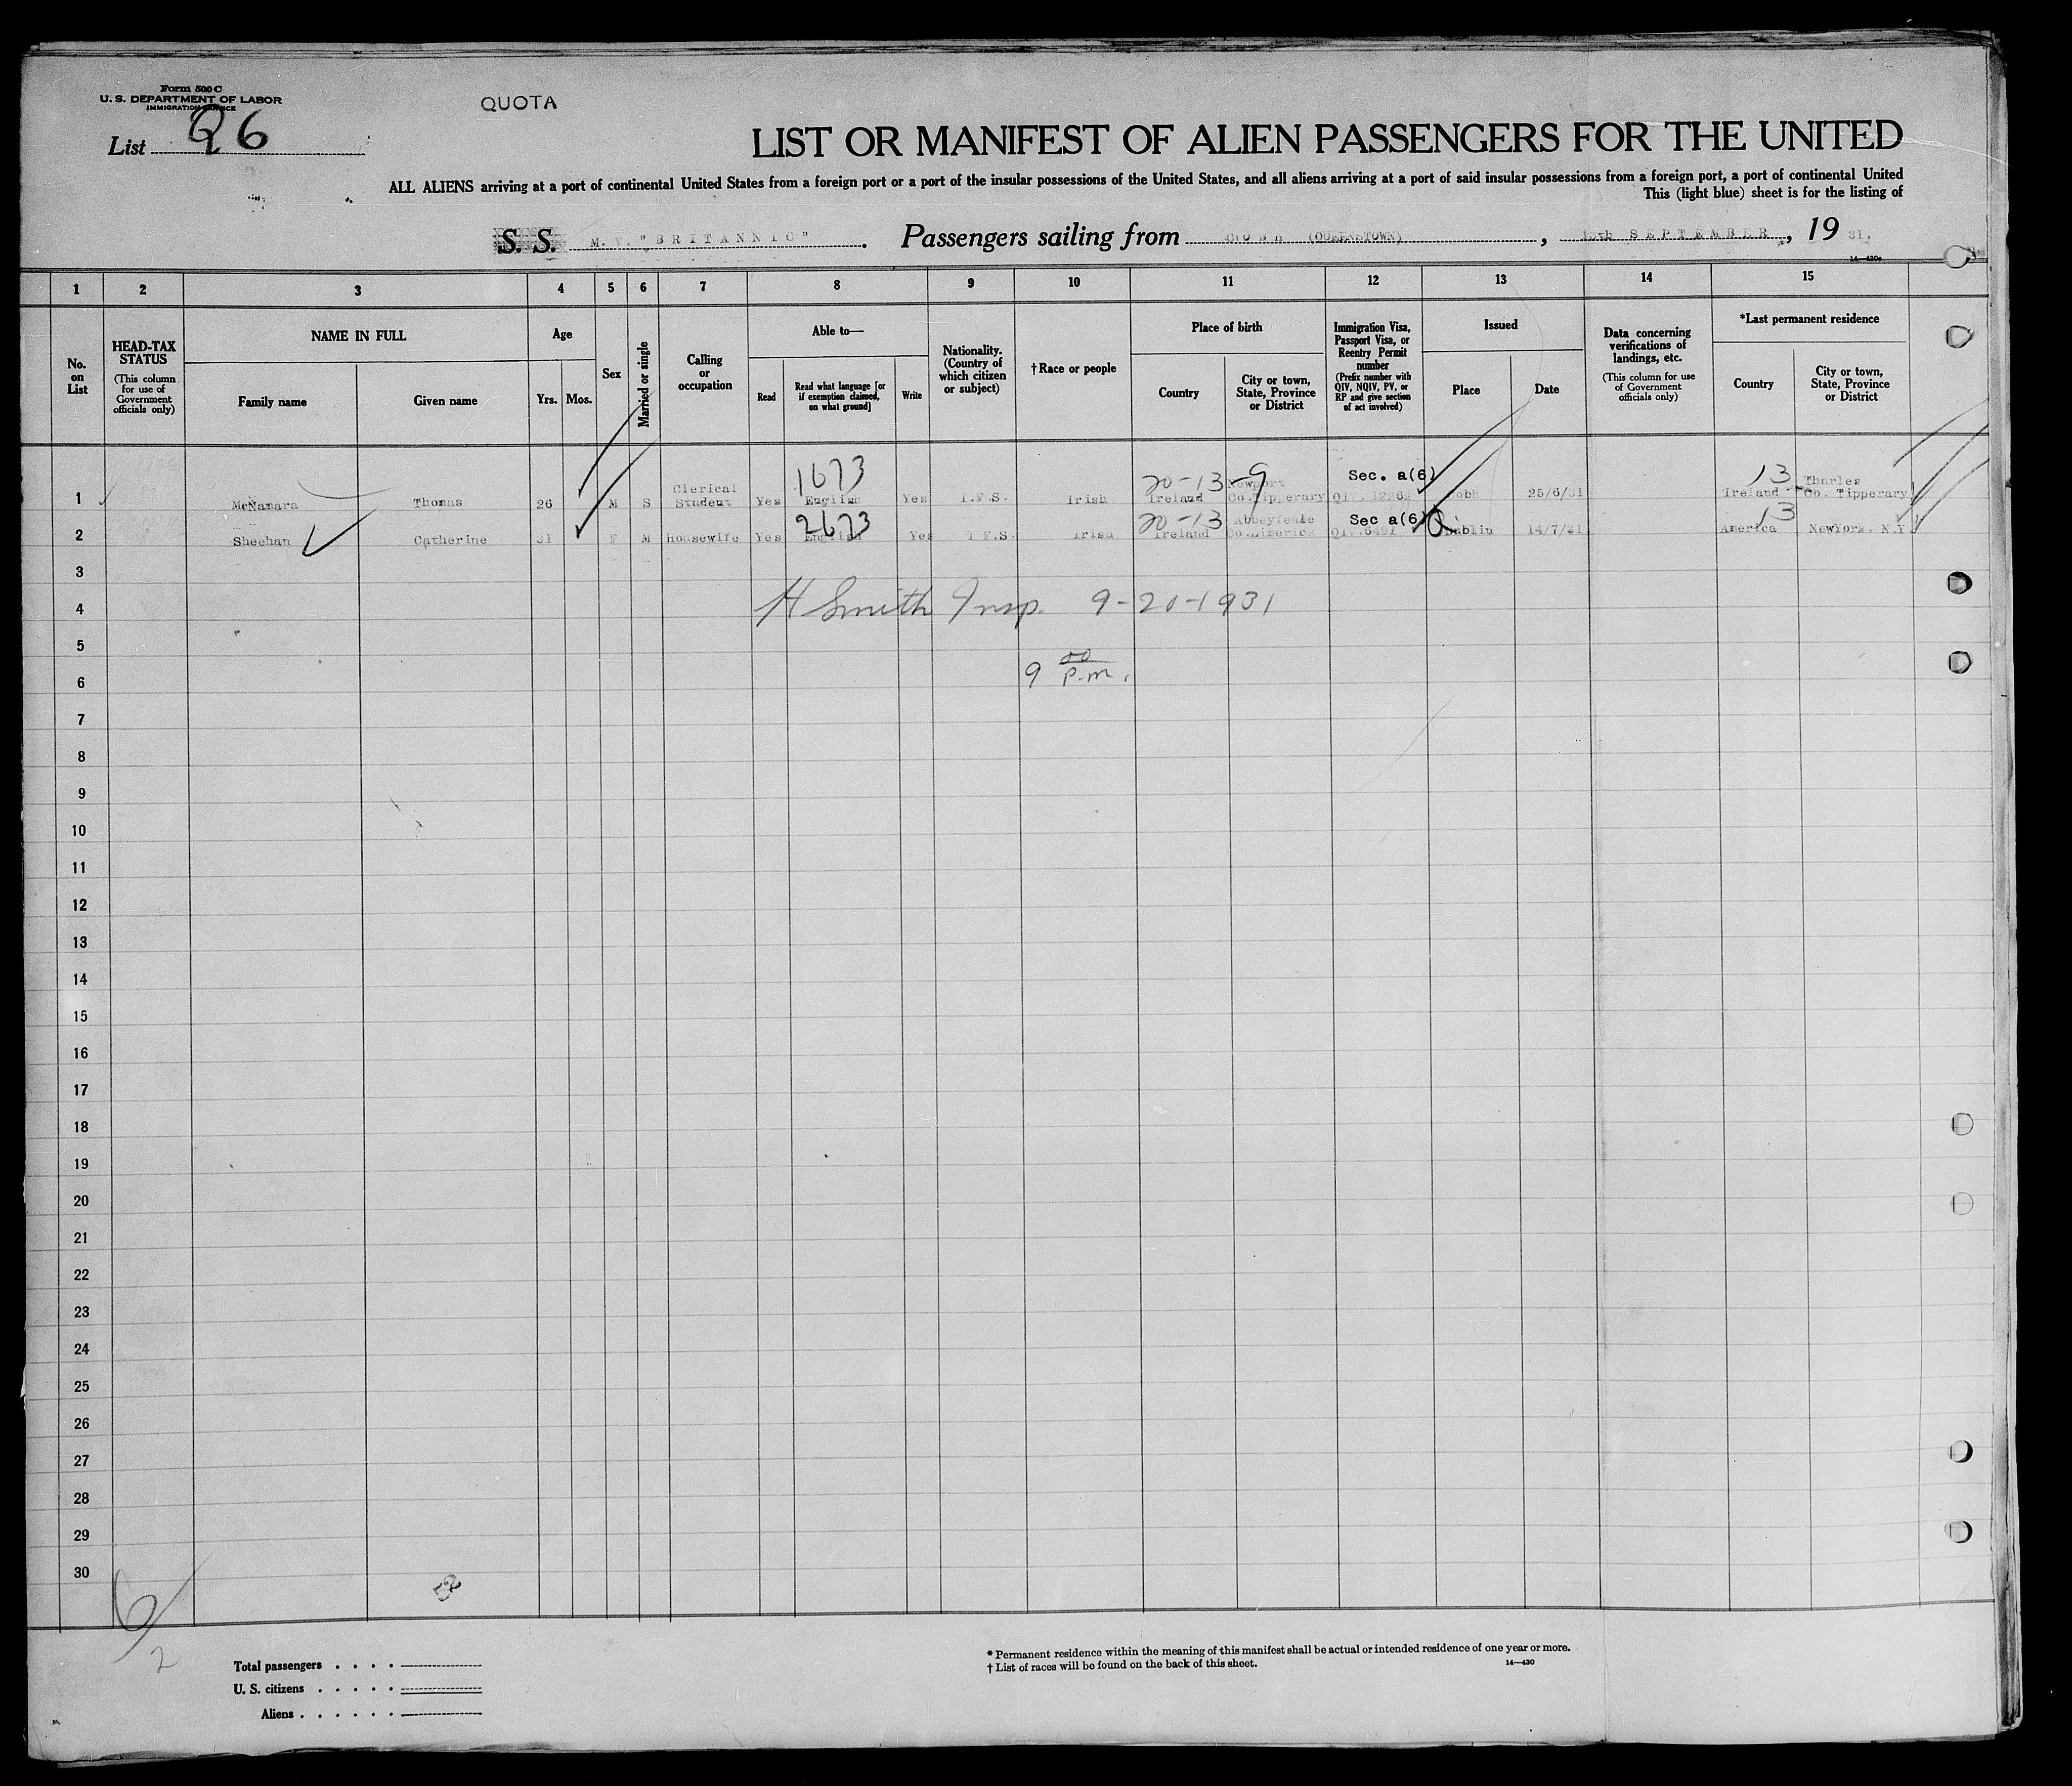 Form 500 C
U. S. DEPARTMENT OF LABOR
IMMIGRATION SERVICE
QUOTA
List 26
LIST OR MANIFEST OF ALIEN PASSENGERS FOR THE UNITED
ALL ALIENS arriving at a port of continental United States from a foreign port or a port of the insular possessions of the United States, and all aliens arriving at a port of said insular possessions from a foreign port, a port of continental United
This (light blue) sheet is for the listing of
S. S. M. V. "BRITANNIC". Passengers sailing from COBH (QUEENSTOWN), SEPTEMBER, 19 31.
14—430c
1 2 3 4 5 6 7 8 9 10 11 12 13 14 15
No. on List
HEAD-TAX STATUS (This column for use of Government officials only)
NAME IN FULL
Family name
Given name
Age
Yrs. Mos.
Sex
Married or single
Calling or occupation
Able to—
Read
Read what language [or if exemption claimed, on what ground]
Write
Nationality. (Country of which citizen or subject)
†Race or people
Place of birth
Country
City or town, State, Province or District
Immigration Visa, Passport Visa, or Reentry Permit number (Prefix number with QIV, NQIV, PV, or RP and give section of act involved)
Issued
Place
Date
Data concerning verifications of landings, etc. (This column for use of Government officials only)
*Last permanent residence
Country
City or town, State, Province or District
1673 20-13-9 Sec. a(6) 13
1 McNamara Thomas 26 M S Clerical Student Yes English Yes I.F.S. Irish Ireland Newport Co.Tipperary Cobh 25/6/31 Ireland Thurles Co. Tipperary
2673 20-13 Sec a(6) 13
2 Sheehan Catherine 31 F M Housewife Yes English Yes I F.S. Irish Ireland Abbeyfeale Co.Limerick Dublin 14/7/31 America NewYork. N.Y.
3
4 H Smith Insp. 9-20-1931
5
6 9 00 p.m.
7
8
9
10
11
12
13
14
15
16
17
18
19
20
21
22
23
24
25
26
27
28
29
30
2
Total passengers
U. S. citizens
Aliens
* Permanent residence within the meaning of this manifest shall be actual or intended residence of one year or more.
† List of races will be found on the back of this sheet.
14—430